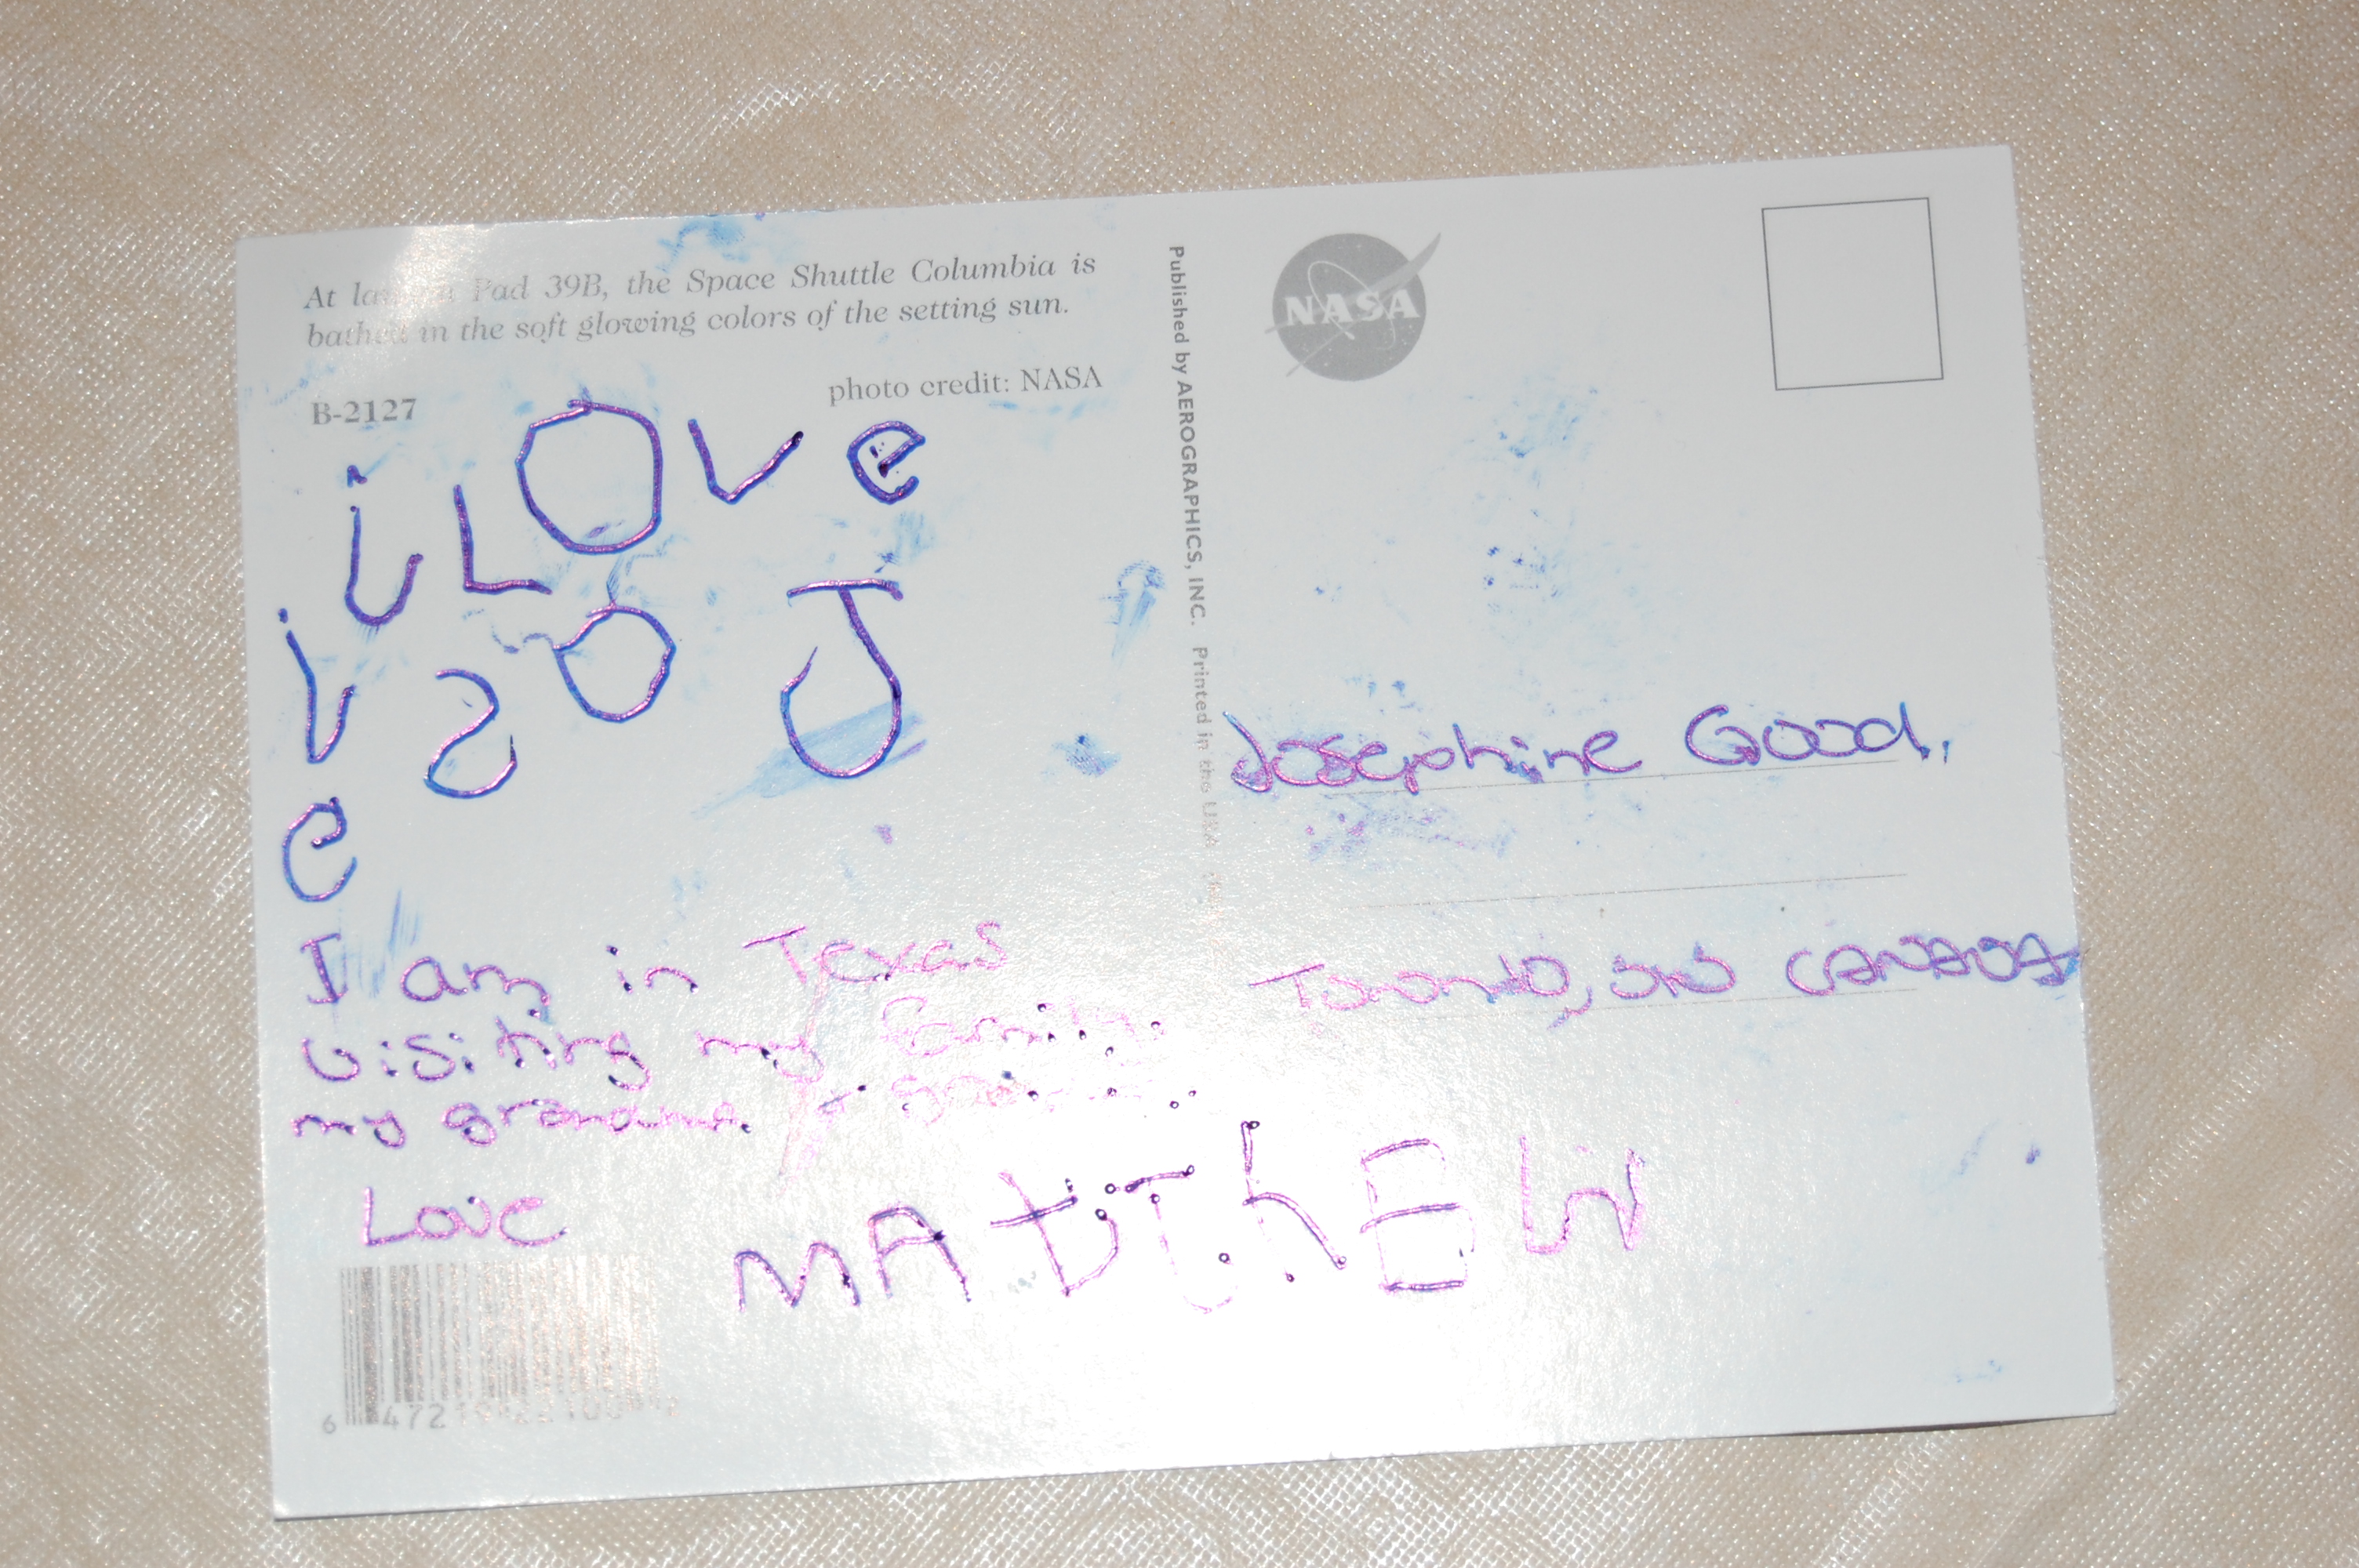 At launch Pad 39B, the Space Shuttle Columbia is
bathed in the soft glowing colors of the setting sun.
photo credit: NASA
B-2127
i LOve
JOS
i
e
I am in Texas
visiting my family.
my grandma &
Love
MAttheW
Published by AEROGRAPHICS, INC. Printed in the USA
NASA
Josephine Good,
Toronto, ON CANADA